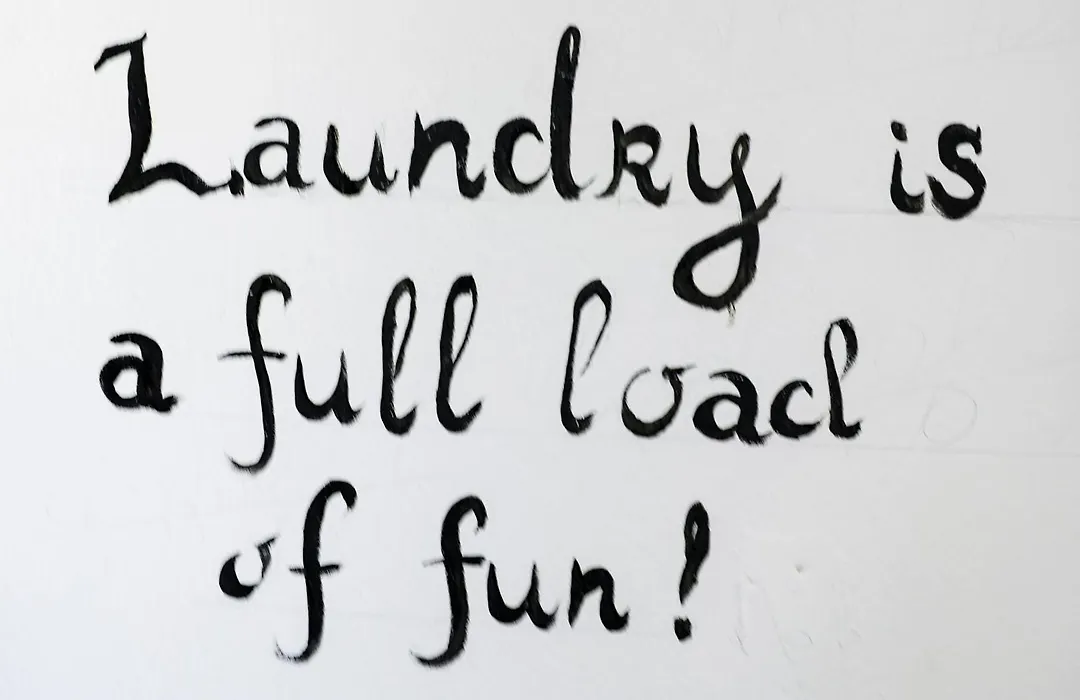 Laundry is
a full load
of fun!